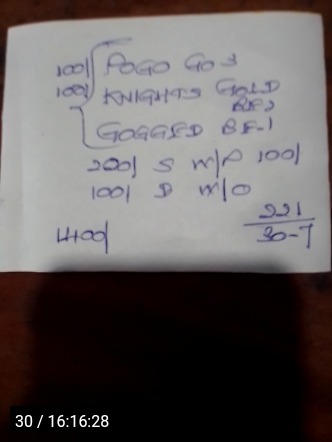 100/ POGO GO 3
100/ KNIGHTS GOLD
BE2
GOGGED BE-1
200/ S W/P 100/
100/ D W/O
221
1400/ 30-7
30 / 16:16:28